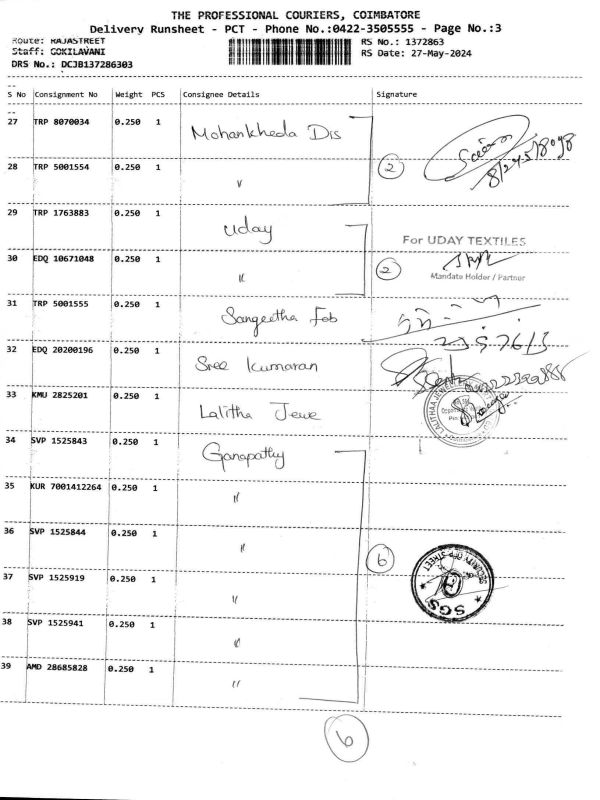 THE PROFESSIONAL COURIERS, COIMBATORE
Delivery Runsheet - PCT - Phone No.:0422-3505555 - Page No.:3
Route: RAJASTREET
RS No.: 1372863
Staff: GOKILAVANI
RS Date: 27-May-2024
DRS No.: DCJB137286303
S No Consignment No Weight PCS Consignee Details Signature
27 TRP 8070034 0.250 1 Mohankheda Dis
28 TRP 5001554 0.250 1 〃 2
29 TRP 1763883 0.250 1 Uday
For UDAY TEXTILES
30 EDQ 10671048 0.250 1 〃 2
Mandate Holder / Partner
31 TRP 5001555 0.250 1 Sangeetha Fab
32 EDQ 20200196 0.250 1 Sree Kumaran
33 KMU 2825201 0.250 1 Lalitha Jewe
34 SVP 1525843 0.250 1 Ganapathy
35 KUR 7001412264 0.250 1 〃
36 SVP 1525844 0.250 1 〃 6
37 SVP 1525919 0.250 1 〃
SGS
38 SVP 1525941 0.250 1 〃
39 AMD 28685828 0.250 1 〃
6